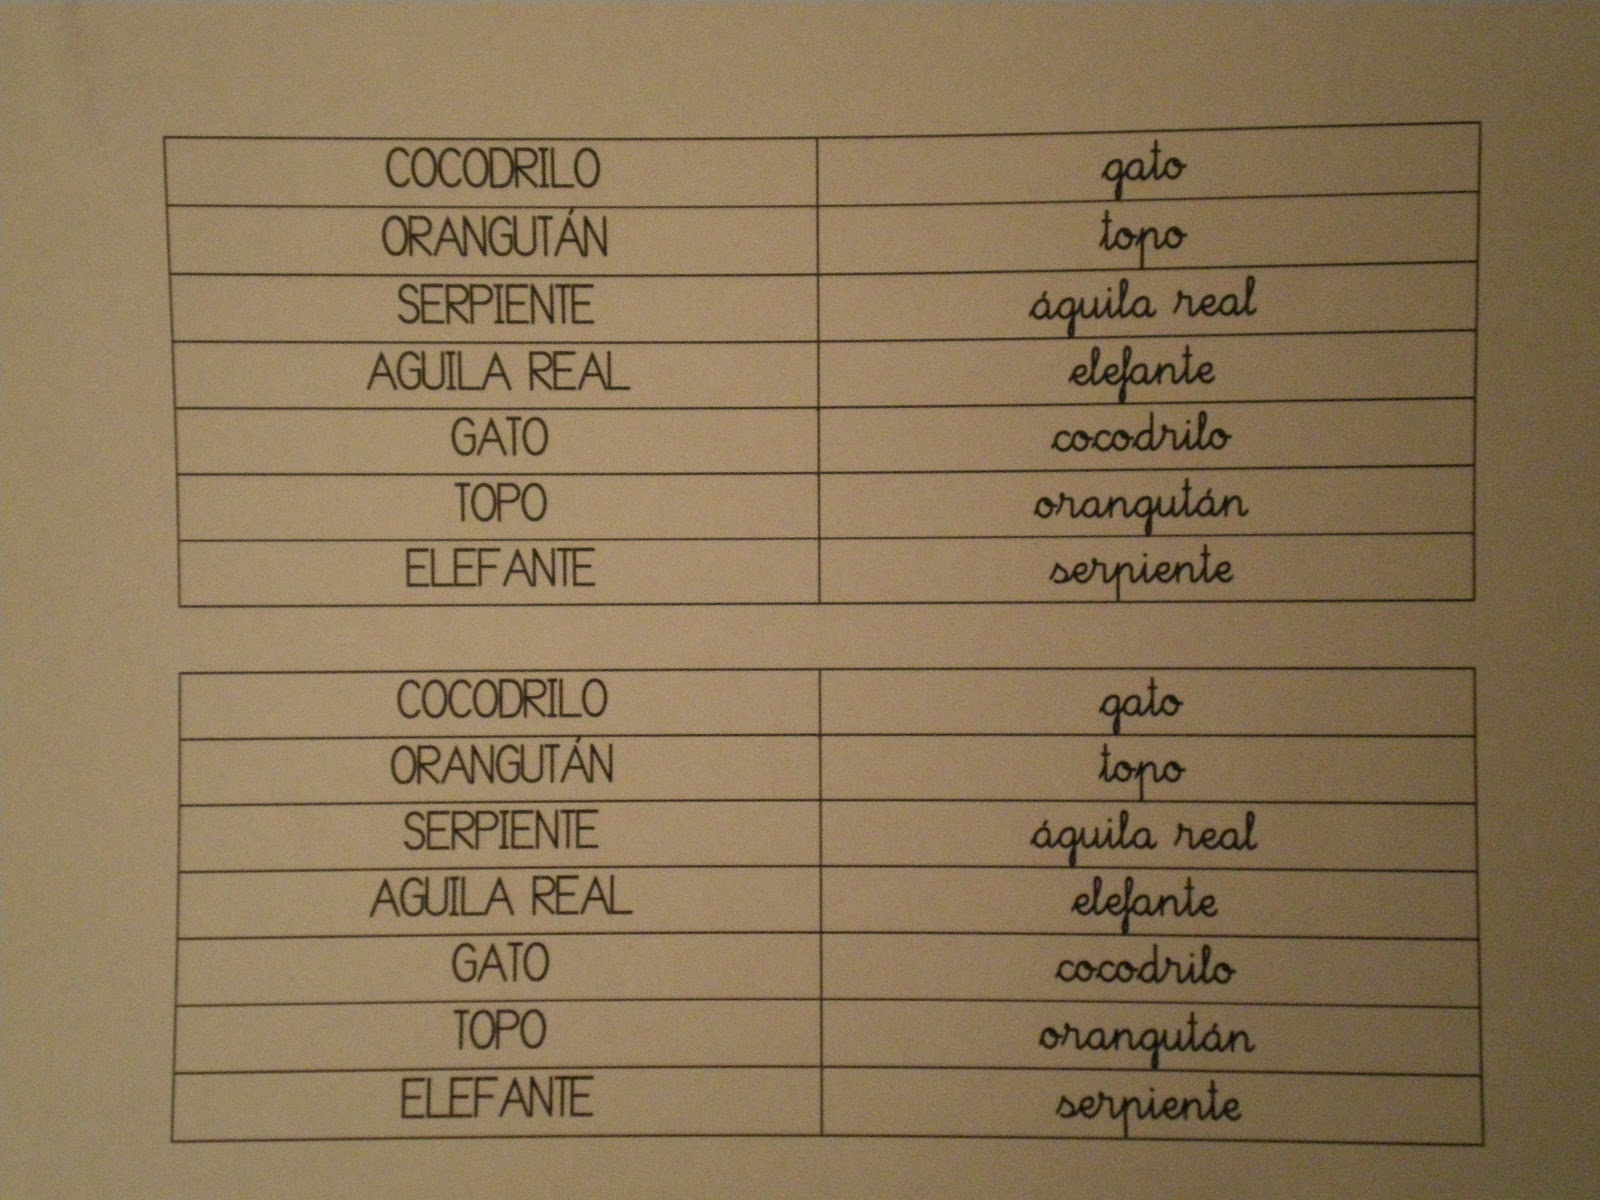 COCODRILO gato
ORANGUTÁN topo
SERPIENTE águila real
AGUILA REAL elefante
GATO cocodrilo
TOPO orangután
ELEFANTE serpiente
COCODRILO gato
ORANGUTÁN topo
SERPIENTE águila real
AGUILA REAL elefante
GATO cocodrilo
TOPO orangután
ELEFANTE serpiente